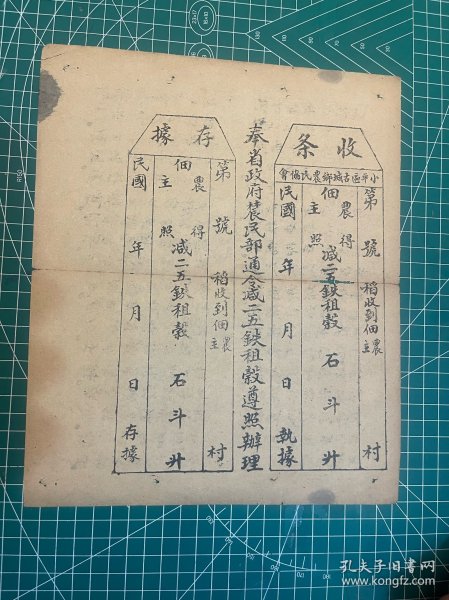 收条
小平區古城鄉農民協會
第 號 稻收到佃農主 村
佃農主 得照 減二五鉄租穀 石 斗 升
民國 年 月 日 執據
奉省政府農民部通令減二五鉄租穀遵照辦理
存據
第 號 稻收到佃農主 村
佃農主 得照 減二五鉄租穀 石 斗 升
民國 年 月 日 存據
孔夫子旧书网
www.kongfz.com